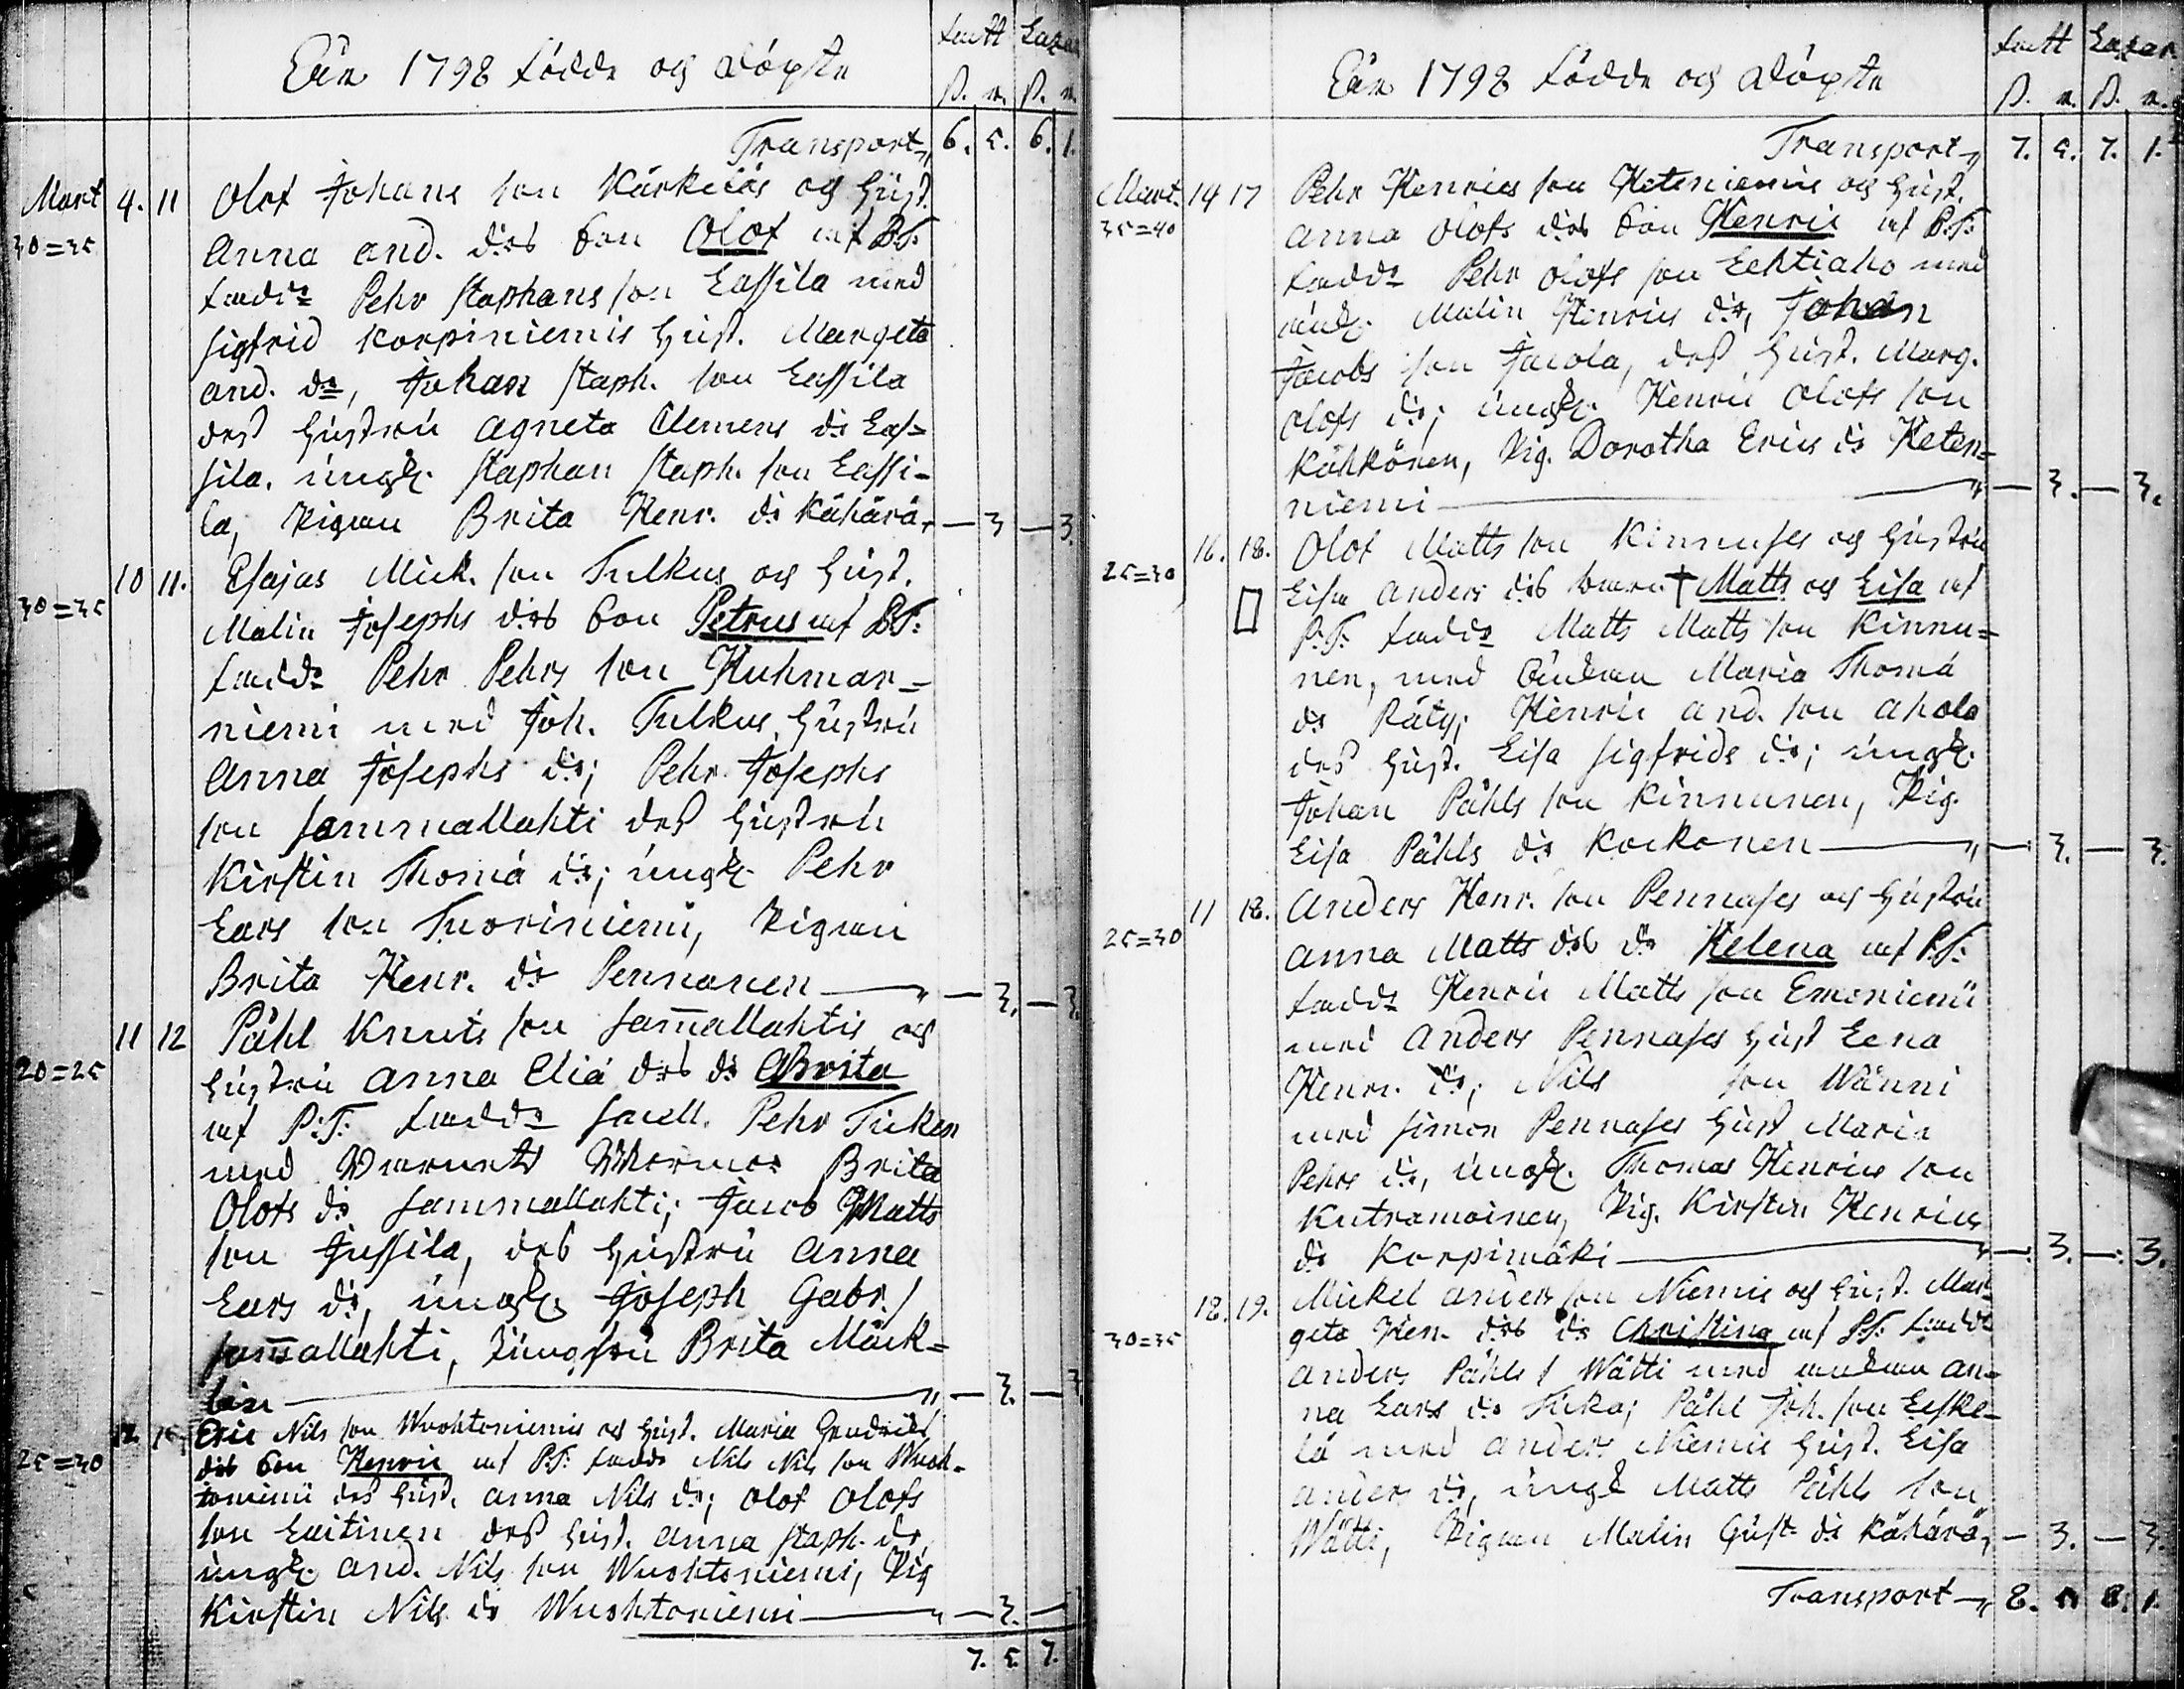 Åhr 1798 födde och döpte
fatt Lazar.
ß. r. ß. r.
Transport 6. 5. 6. 1.
Mart 4. 11 Olof Johans son Kärkeiäs och Hust.
30=35 Anna And. drs son Olof af B.F.
fadd: Pehr Staphans son Lassila med
Sigfrid Korpiniemis Hust. Margeta
And. dr, Johan Staph. son Lassila
dess Hustru Agneta Clemens dr Las=
sila. ungk. Staphan Staph. son Lassi=
la, Pigan Brita Henr. dr Kähärä — 3 — 3.
10 11. Esajas Mick. son Tulkus och Hust.
30=35 Malin Josephs drs son Petrus af B.F.
fadd: Pehr Pehrs son Kuhmar=
niemi med Joh. Tulkus Hustru
Anna Josephs dr; Pehr Josephs
son Sammallahti dess Hustru
Kirstin Thomä dr; ungk. Pehr
Lars son Tuoriniemi, Pigan
Brita Henr. dr Pennanen — 3. — 3.
11 12 Påhl Knuts son Sam̄allahtis och
20=25 Hustru Anna Eliä drs dr Brita
af P.F. fadd: Pehr Tiken
med Brita
Olofs dr Sammallahti; Jacob Matts
son Jussila, dess Hustru Anna
Lars dr, ungk. Joseph Gabr. s
Sam̄allahti, Jungfru Brita Mäck=
lin — 3. — 3
12. 15. Eric Nils son Wuohtoniemis och Hust. Maria
25=30 drs son Henric af P.F. fadd: Nils Nils son Wuoh=
toniemi dess Hust. Anna Nils dr; Olof Olofs
son Laitinen dess Hust. Anna Staph. dr,
ungk. And. Nils son Wuohtoniemi, Pig
Kirstin Nils dr Wuohtoniemi — 3. —
7. 5. 7.
Åhr 1798 födde och döpte
fatt Lazar.
ß. r. ß. r.
Transport 7. 5. 7. 1.
Mart. 14 17 Pehr Henrics son Keteniemis och Hust.
35=40 Anna Olofs drs son Henric af B.F.
fadd: Pehr Olofs son Lehtiaho med
Malin Henrics dr, Johan
Jacobs son Jacola, dess Hust. Marg.
Olofs dr; ungk. Henric Olofs son
Kähkönen, Pig. Dorotha Erics dr Keten=
niemi — 3. — 3.
16. 18. Olof Matts son Kinnuses och Hustru
25=30 Lisa Anders drs barn † Matts och Lisa af
P.F. fadd: Matts Matts son Kinnu=
nen, med Maria Thomä
dr Räty; Henric And. son Ahola
dess Hust. Lisa Sigfrids dr; ungk.
Johan Påhls son Kinnunen, Pig.
Lisa Påhls dr Kockonen — 3. — 3.
11 18. Anders Henr. son Pennases och Hustru
25=30 Anna Matts drs dr Helena af P.F.
fadd: Henric Matts son Emoniemi
med Anders Pennases Hust Lena
Henr. dr; Nils son Wänni
med Simon Pennases Hust Maria
Pehrs dr, ungk. Thomas Henrics son
Kutramoinen, Pig. Kirstin Henrics
dr Korpimäki — 3. — 3.
18. 19. Mickel Anders son Niemis och Hust. Mar=
30=35 geta Hen. drs dr Christina af P.F. fadd:
Anders Påhls s Wätti med An=
na Lars dr Tuka; Påhl Joh. son Leske=
lä med Anders Niemis Hust. Lisa
Anders dr, ungk Matts Påhls son
Wätti, Pigan Malin Gust. dr Kähärä — 3. — 3.
Transport 8. 8. 1.